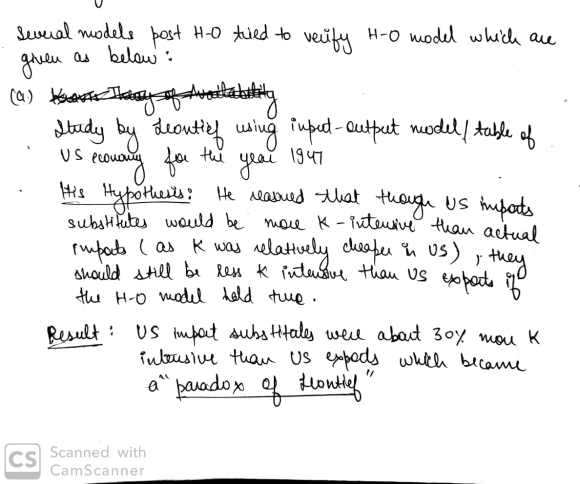 Several models post H-O tried to verify H-O model which are
given as below :
(a) Kravis Theory of Availability
Study by Leontief using input-output model/ table of
US economy for the year 1947
His Hypothesis : He reasoned that though US imports
substitutes would be more K-intensive than actual
imports ( as K was relatively cheaper in US ) , they
should still be less K intensive than US exports if
the H-O model held true .
Result : US import substitutes were about 30% more K
intensive than US exports which became
a " paradox of Leontief "
CS Scanned with
CamScanner